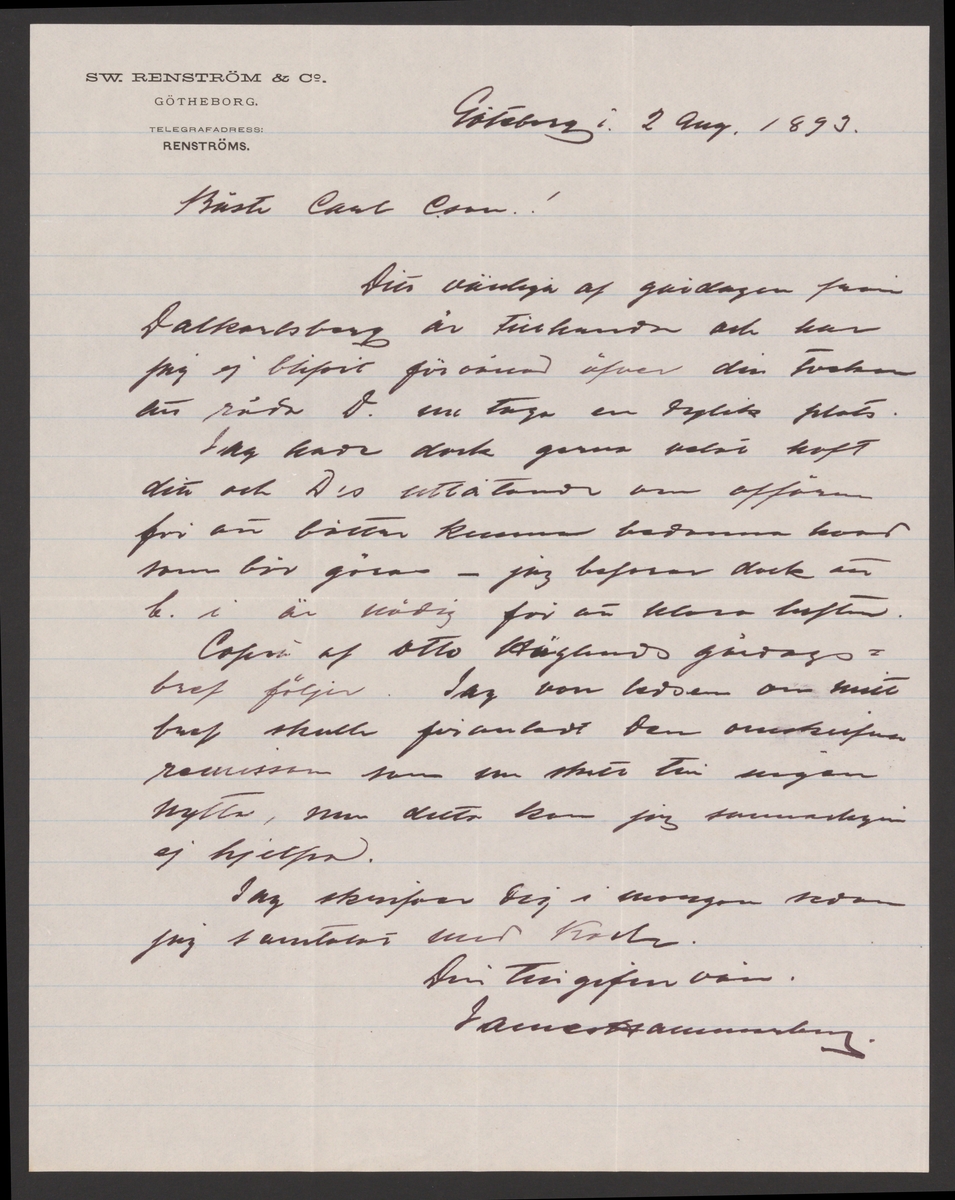 SW. RENSTRÖM & Cº.
GÖTHEBORG.
TELEGRAFADRESS:
RENSTRÖMS.
Göteborg i. 2 Aug. 1893.
Bäste Carl Cson.!
Ditt vänliga af gårdagen från
Dalkarlsberg är tillhanda och har
jag ej blifvit förvånad öfver din tvekan
att råda D. att taga en dylik plats.
Jag hade dock gerna velat haft
ditt och D:s utlåtande om affären
för att bättre kunna bedöma hvad
som bör göras — jag befarar dock att
b. i är nödig för att klara luften.
Copia af Otto Höglunds gårdags=
bref följer. Jag vore ledsen om mitt
bref skulle föranledt den omskrifna
remissen som en skett till ingen
nytta, men detta kan jag sannerligen
ej hjelpa.
Jag skrifver Dig i morgon sedan
jag samtalat med Koch.
Din tillgifne vän.
James Hammarberg.